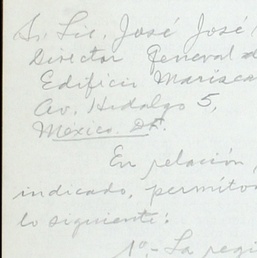 Sr. Lic. José José
Director General d
Edificio Marisca
Av. Hidalgo 5,
México. DF.
En relación,
indicado, permíto
lo siguiente:
1º.- La regi